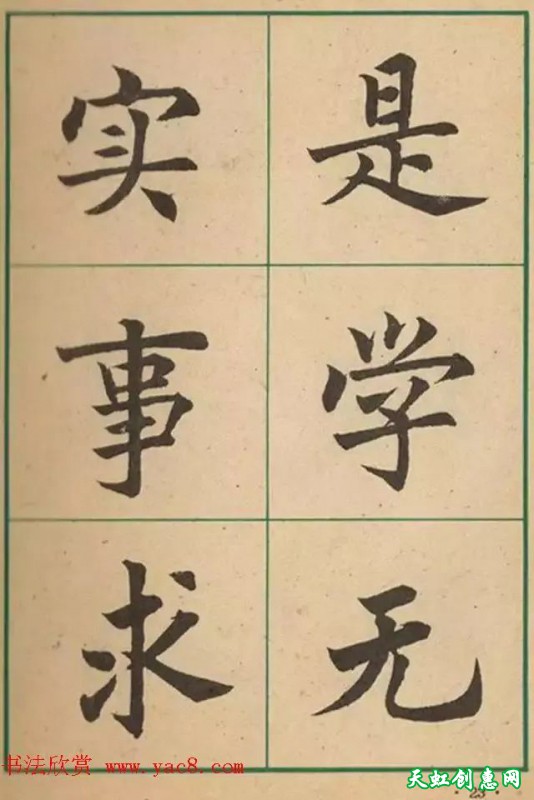 实事求
是学无
书法欣赏 www.yac8.com
天虹创惠网